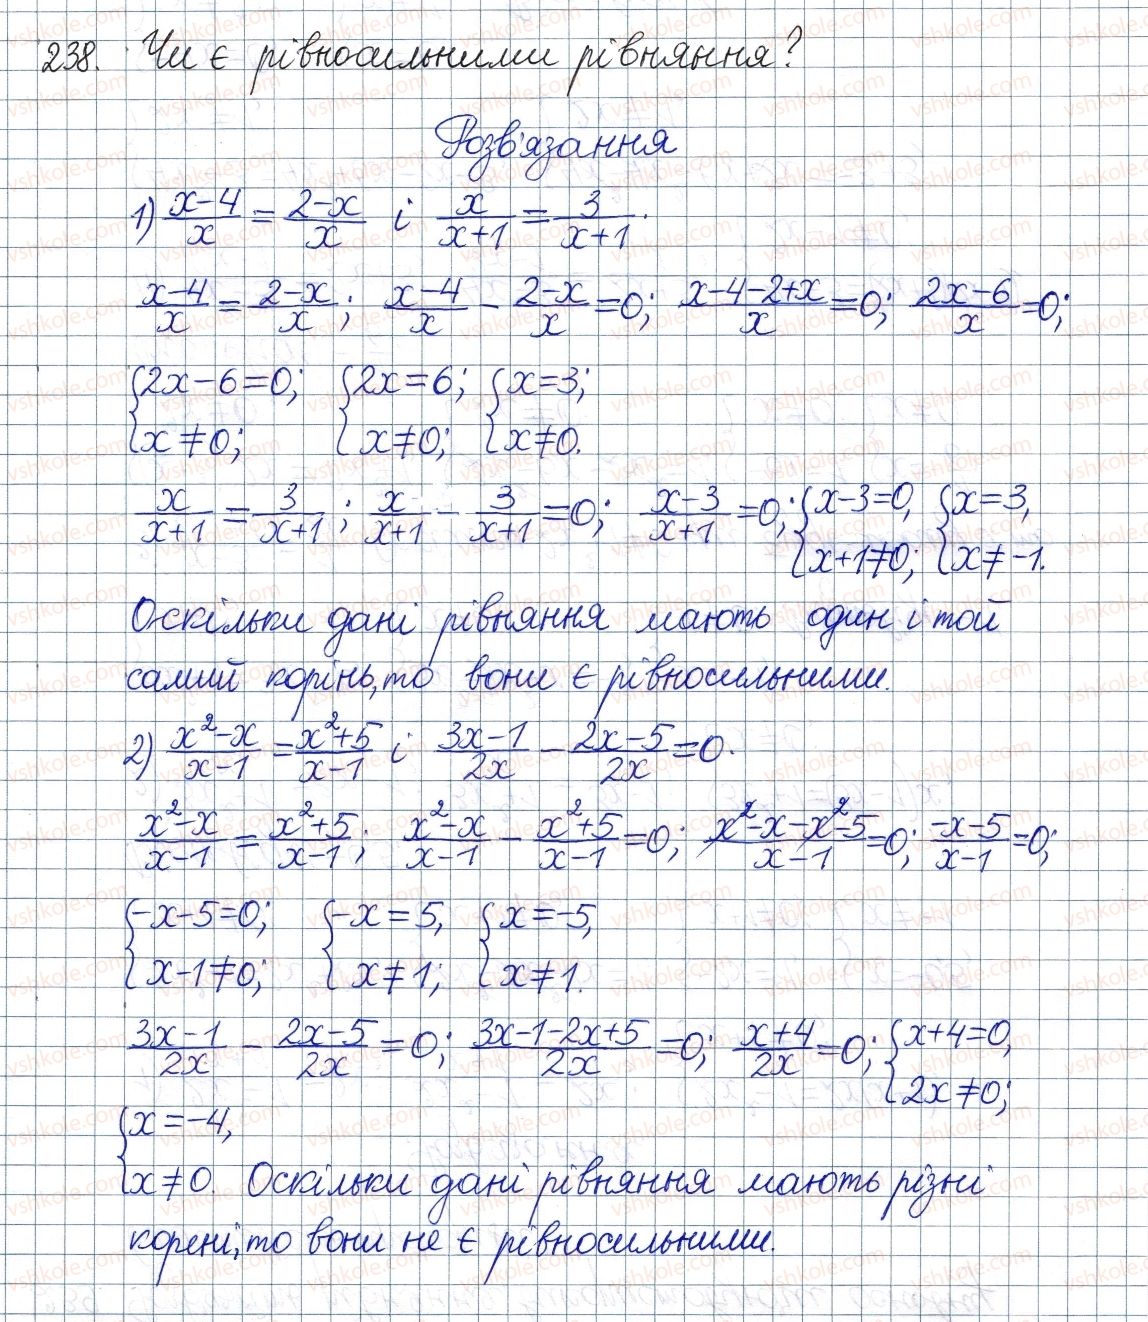 238. Чи є рівносильними рівняння?
Розв'язання
1) (x-4)/x = (2-x)/x і x/(x+1) = 3/(x+1).
(x-4)/x = (2-x)/x; (x-4)/x - (2-x)/x = 0; (x-4-2+x)/x = 0; (2x-6)/x = 0;
{2x-6=0; x≠0; {2x=6; x≠0; {x=3; x≠0.
x/(x+1) = 3/(x+1); x/(x+1) - 3/(x+1) = 0; (x-3)/(x+1) = 0; {x-3=0, x+1≠0; {x=3, x≠-1.
Оскільки дані рівняння мають один і той
самий корінь, то вони є рівносильними.
2) (x²-x)/(x-1) = (x²+5)/(x-1) і (3x-1)/2x - (2x-5)/2x = 0.
(x²-x)/(x-1) = (x²+5)/(x-1); (x²-x)/(x-1) - (x²+5)/(x-1) = 0; (x²-x-x²-5)/(x-1) = 0; (-x-5)/(x-1) = 0;
{-x-5=0; x-1≠0; {-x=5, x≠1; {x=-5, x≠1.
(3x-1)/2x - (2x-5)/2x = 0; (3x-1-2x+5)/2x = 0; (x+4)/2x = 0; {x+4=0, 2x≠0;
{x=-4,
x≠0. Оскільки дані рівняння мають різні
корені, то вони не є рівносильними.